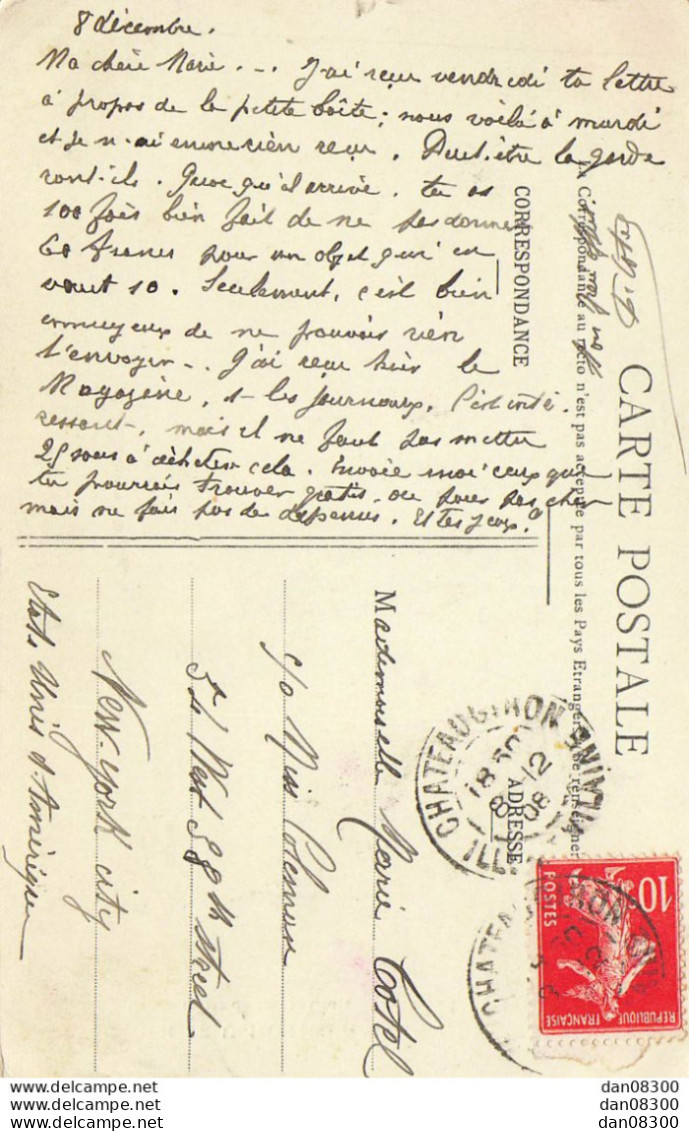 8 décembre.
Ma chère Marie. -. J'ai reçu vendredi ta lettre
à propos de la petite boîte; nous voilà à mardi
et je n'ai encore rien reçu. Peut-être la garde
ront-ils. Quoi qu'il arrive, tu as
100 fois bien fait de ne pas donner
60 francs pour un objet qui en
vaut 10. Seulement, c'est bien
ennuyeux de ne pouvoir rien
t'envoyer. J'ai reçu hier le
Magazine, et les journaux. C'est inté-
ressant, mais il ne faut pas mettre
25 sous à acheter cela. Envoie moi ceux que
tu pourrais trouver gratis ou pour pas cher
mais ne fais pas de dépenses. Et tes yeux?
CARTE POSTALE
La Correspondance au recto n'est pas acceptée par tous les Pays Etrangers (Se renseigner
CORRESPONDANCE
ADRESSE
Mademoiselle Marie Costel
c/o Miss Coleman
54 West 58th Street
New-York City
Etats Unis d'Amérique
CHATEAUGIRON ILLE-ET-VILAINE
18 50
8 12
08
10
POSTES
REPUBLIQUE FRANÇAISE
CHATEAUGIRON
dan08300
dan08300
dan08300